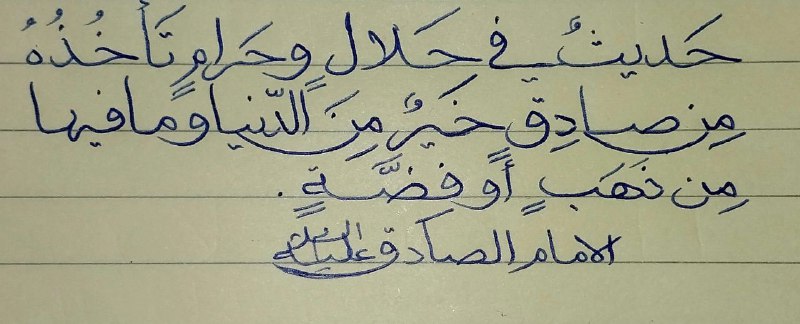 حَديثٌ في حَلالٍ وحَرامٍ تَأخُذُهُ
مِن صادِقٍ خَيرٌ مِنَ الدّنيا وما فيها
مِن ذَهَبٍ أو فِضَّةٍ.
الامام الصادق عليه السلام